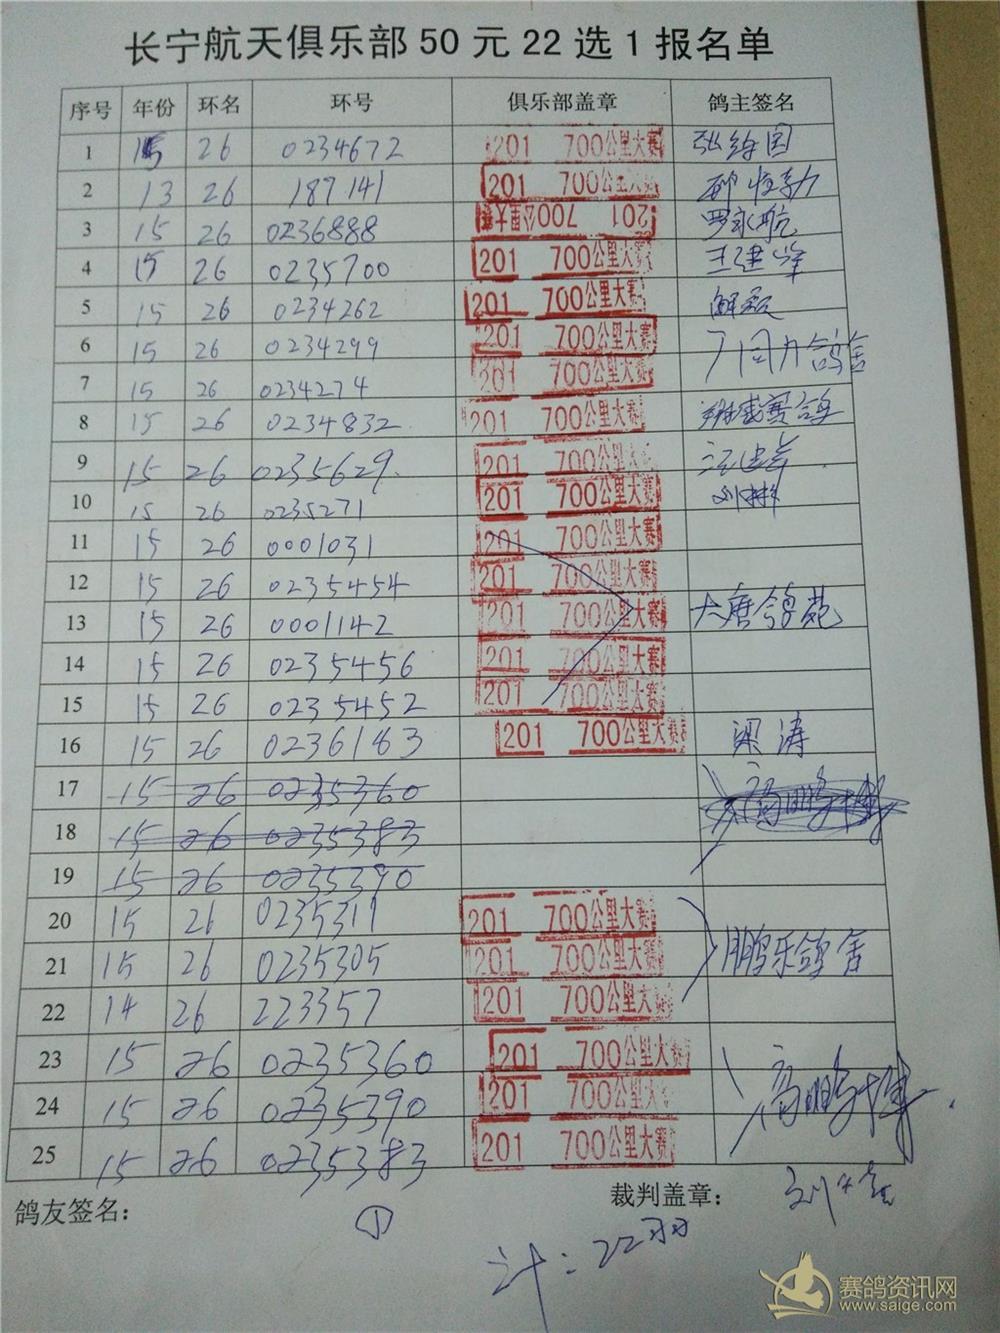 长宁航天俱乐部50元22选1报名单
序号 年份 环名 环号 俱乐部盖章 鸽主签名
1 15 26 0234672 201 700公里大赛
2 13 26 187141 201 700公里大赛
3 15 26 0236888 201 700公里大赛 罗永航
4 15 26 0235700 201 700公里大赛 王建峰
5 15 26 0234262 201 700公里大赛
6 15 26 0234299 201 700公里大赛 鸽舍
7 15 26 0234274 201 700公里大赛
8 15 26 0234832 201 700公里大赛 赛鸽
9 15 26 0235629 201 700公里大赛
10 15 26 0235271 201 700公里大赛
11 15 26 0001031 201 700公里大赛
12 15 26 0235454 201 700公里大赛
13 15 26 0001142 201 700公里大赛 大唐鸽苑
14 15 26 0235456 201 700公里大赛
15 15 26 0235452 201 700公里大赛
16 15 26 0236183 201 700公里大赛 梁涛
17 15 26 0235360
18 15 26 0235383
19 15 26 0235390
20 15 26 0235311 201 700公里大赛
21 15 26 0235305 201 700公里大赛 鹏乐鸽舍
22 14 26 223357 201 700公里大赛
23 15 26 0235360 201 700公里大赛
24 15 26 0235390 201 700公里大赛 高鹏博
25 15 26 0235383 201 700公里大赛
鸽友签名： 裁判盖章：
①
计：22羽
赛鸽资讯网
www.saige.com